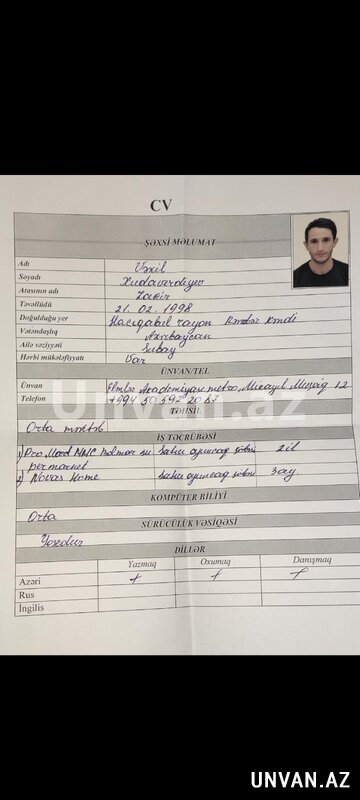 CV
ŞƏXSİ MƏLUMAT
Adı
Soyadı Xudaverdiyev
Atasının adı Zakir
Təvəllüdü 21.02.1998
Doğulduğu yer Hacıqabul rayon kəndi
Vətəndaşlıq Azərbaycan
Ailə vəziyyəti Subay
Hərbi mükəlləfiyyəti Var
ÜNVAN/TEL
Ünvan Elmlər Akademiyası metro, Mikayıl Müşviq 12
Telefon +994 50 592 20 87
Unvan.az
TƏHSİL
Orta məktəb
İŞ TƏCRÜBƏSİ
1) MMC Satış 2 il
2) Novas Home Satış 3 ay.
KOMPÜTER BİLİYİ
Orta
SÜRÜCÜLÜK VƏSİQƏSİ
Yoxdur
DİLLƏR
Yazmaq Oxumaq Danışmaq
Azəri + + +
Rus
İngilis
UNVAN.AZ